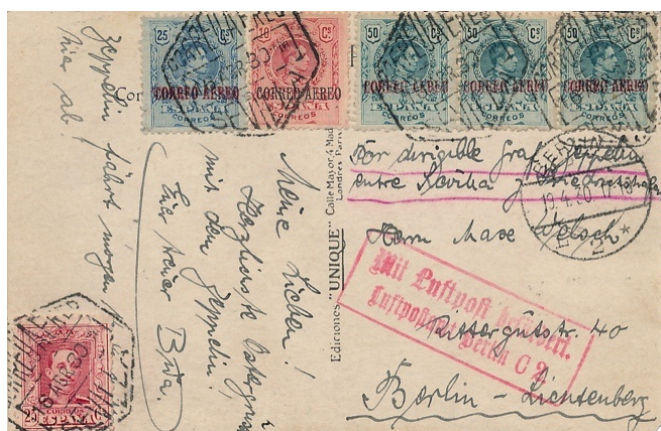 25 Cs
10 Cs
50 Cs
50 Cs
50 Cs
CORREO AEREO
CORREO AEREO
CORREO AEREO
CORREO AEREO
CORREO AEREO
ESPAÑA
CORREOS
Zeppelin fährt morgen
hier ab.
Meine Lieben!
Herzlichste Ostergrüsse
mit dem Zeppelin.
Euer treuer
Ediciones "UNIQUE" Calle Mayor, 4 Mad
Londres París
Por dirigible Graf Zeppelin
entre Sevilla y Friedrichshafen
BERLIN
19.4.30. 17-18
Herrn Max
Mit Luftpost befördert.
Luftpostamt Berlin C 2
Rittergutstr. 40
Berlin - Lichtenberg
25 Cs
ESPAÑA